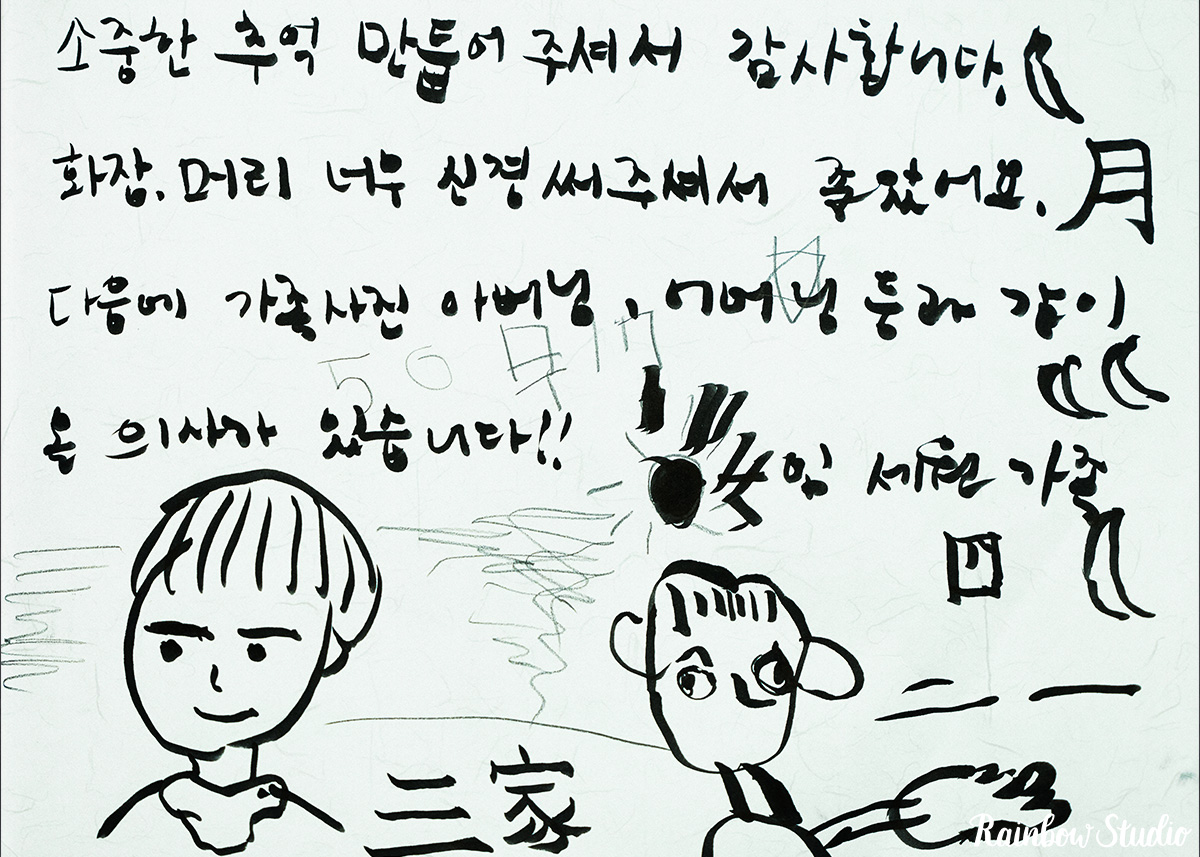 소중한 추억 만들어 주셔서 감사합니다.
화장, 머리 너무 신경써주셔서 좋았어요. 月
다음에 가족사진 아버님, 어머님 같이
50
올 의사가 있습니다!!
女임 가족
四
二 一
三家
Rainbow Studio